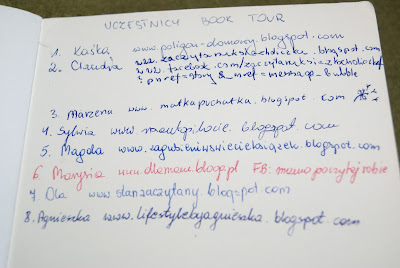 UCZESTNICY BOOK TOUR
1. Kaśka www.poligon-domowy.blogspot.com
2. Claudia www.zaczytanaksiazkoholiczka.blogspot.com
www.facebook.com/
? pnref=story & mref=message_bubble
3. Marzena www.matkapuchatka.blogspot.com
4. Sylwia www. .blogspot.com
5. Magda www. .blogspot.com
6. Marysia www.dlamam.bloog.pl FB: mamo poczytaj sobie
7. Ola www.stanzaczytany.blogspot.com
8. Agnieszka www.lifestylebyagnieszka.blogspot.com